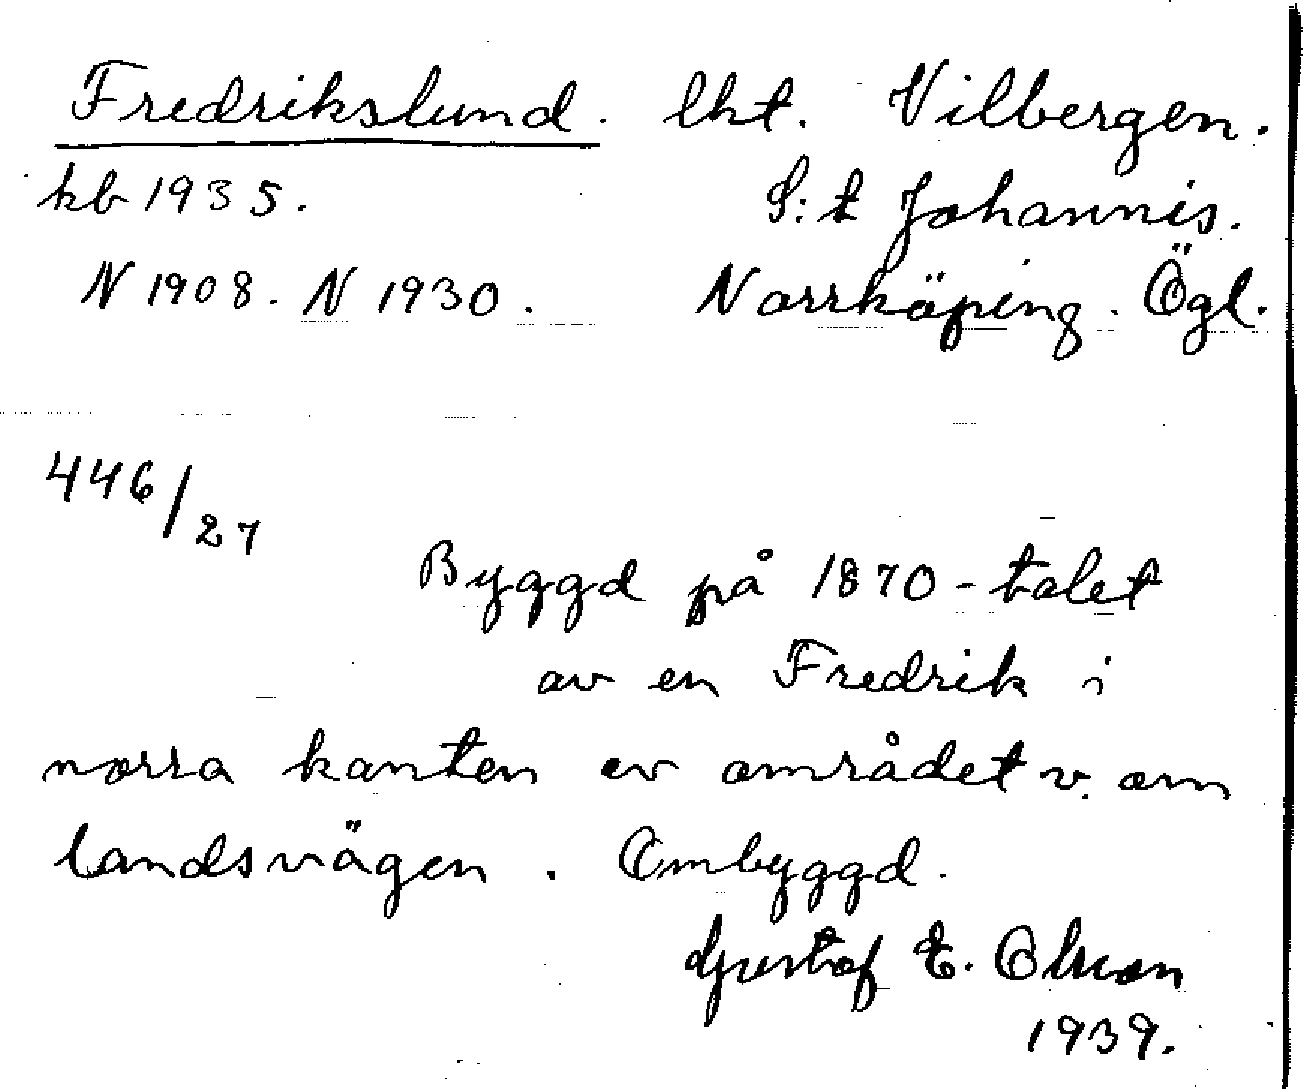 Fredrikslund. lht. Vilbergen.
kb 1935. S:t Johannis.
N 1908. N 1930. Norrköping. Ögl.
446/27
Byggd på 1870-talet
av en Fredrik i
norra kanten av området v. om
landsvägen. Ombyggd.
Gustaf E. Olsson
1939.